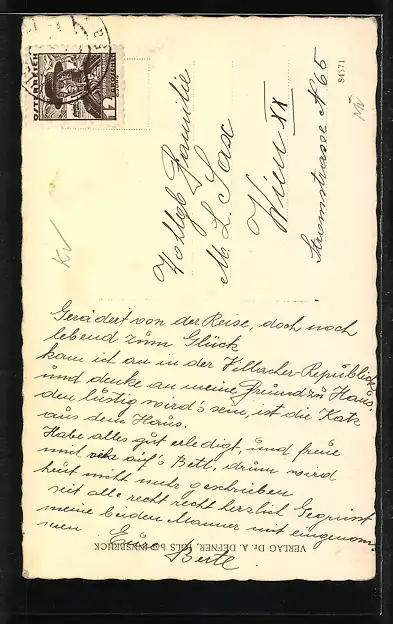 ÖSTERREICH
12
GROSCHEN
Wohlgb Familie
M. L. Sax
Wien XX
Stromstrasse No 65
84571
Gerädert von der Reise, doch noch
lebend zum Glück
kam ich an in der Villacher-Republick
und denke an meine Freund zu Haus,
den lustig wird's sein, ist die Katz
aus dem Haus.
Habe alles gut erledigt, und freue
mich auf's Bett, drum wird
heut nicht mehr geschrieben
seit alle recht recht herzlich Gegrüsst
meine beiden Männer mit eingenom-
men Eure
Berte
VERLAG Dr. A. DEFNER, IGLS b. INNSBRUCK